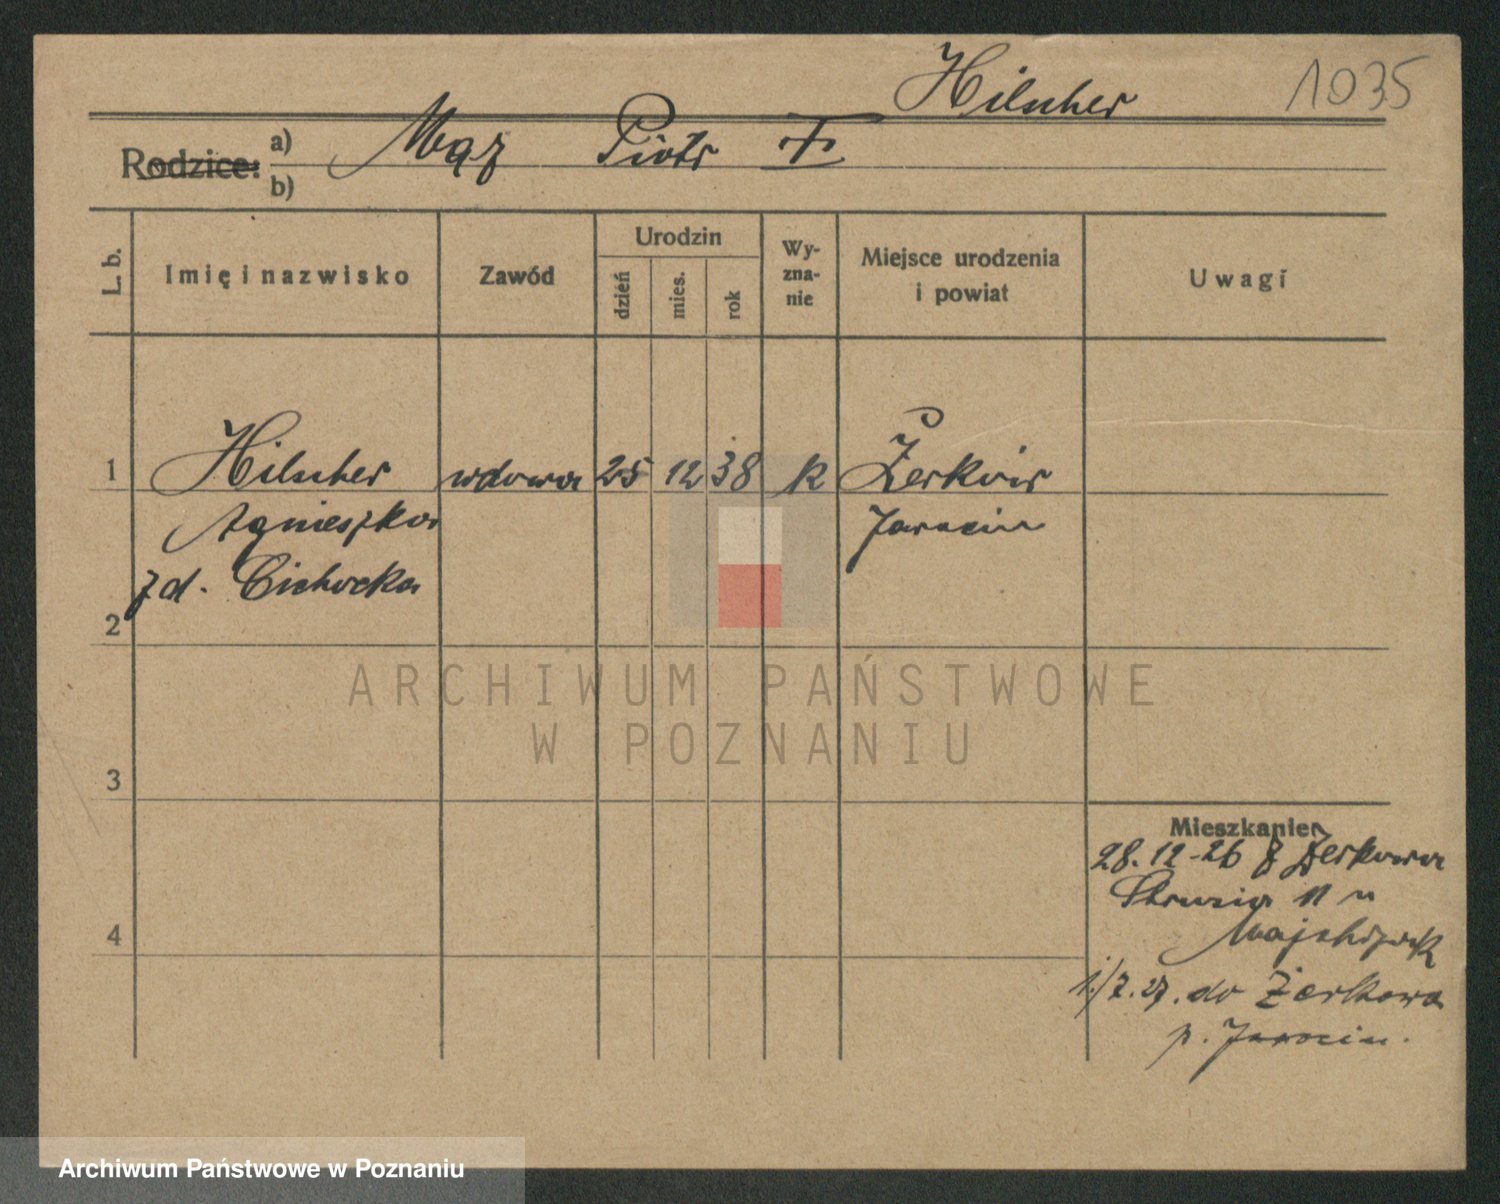 Hilscher 1035
Rodzice: a) Mąż Piotr
b)
L. b.
Imię i nazwisko
Zawód
Urodzin
dzień
mies.
rok
Wy-
zna-
nie
Miejsce urodzenia
i powiat
Uwagi
1 Hilscher wdowa 25 12 38 k Żerków
Agnieszka Jarocin
zd. Cichocka
2
3
4
Mieszkanie:
28.12-26 z Żerkowa
Strusia 11 u
1./7.27. do Żerkowa
p. Jarocin.
ARCHIWUM PAŃSTWOWE
W POZNANIU
Archiwum Państwowe w Poznaniu